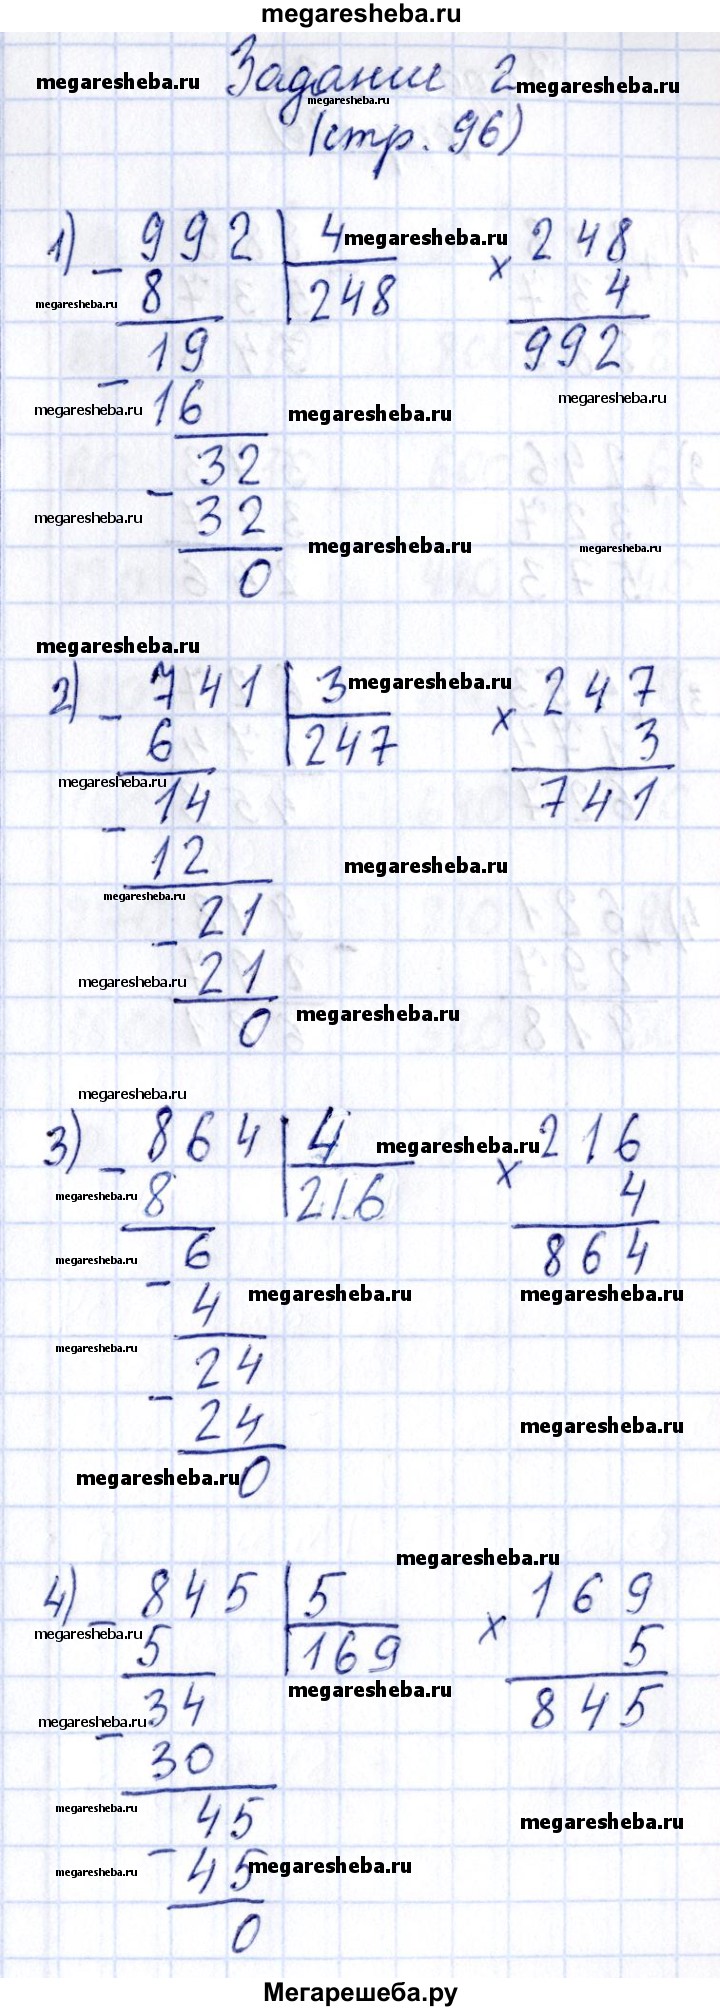 megaresheba.ru
Задание 2
megaresheba.ru megaresheba.ru megaresheba.ru
(стр. 96)
1) - 992 | 4 × 248
megaresheba.ru
8 | 248 4
megaresheba.ru
19 992
- 16
megaresheba.ru megaresheba.ru megaresheba.ru
32
- 32
megaresheba.ru megaresheba.ru megaresheba.ru
0
megaresheba.ru
2) - 741 | 3 × 247
megaresheba.ru
6 | 247 3
megaresheba.ru
14 741
- 12
megaresheba.ru
megaresheba.ru
21
- 21
megaresheba.ru
0
megaresheba.ru
megaresheba.ru
3) - 864 | 4 × 216
megaresheba.ru
8 | 216 4
megaresheba.ru
6 864
megaresheba.ru
- 4
megaresheba.ru megaresheba.ru
24
megaresheba.ru
- 24
megaresheba.ru
0
megaresheba.ru
megaresheba.ru
4) - 845 | 5 × 169
megaresheba.ru
5 | 169 5
megaresheba.ru
34 845
megaresheba.ru
- 30
45
megaresheba.ru megaresheba.ru
- 45
megaresheba.ru megaresheba.ru
0
Мегарешеба.ру